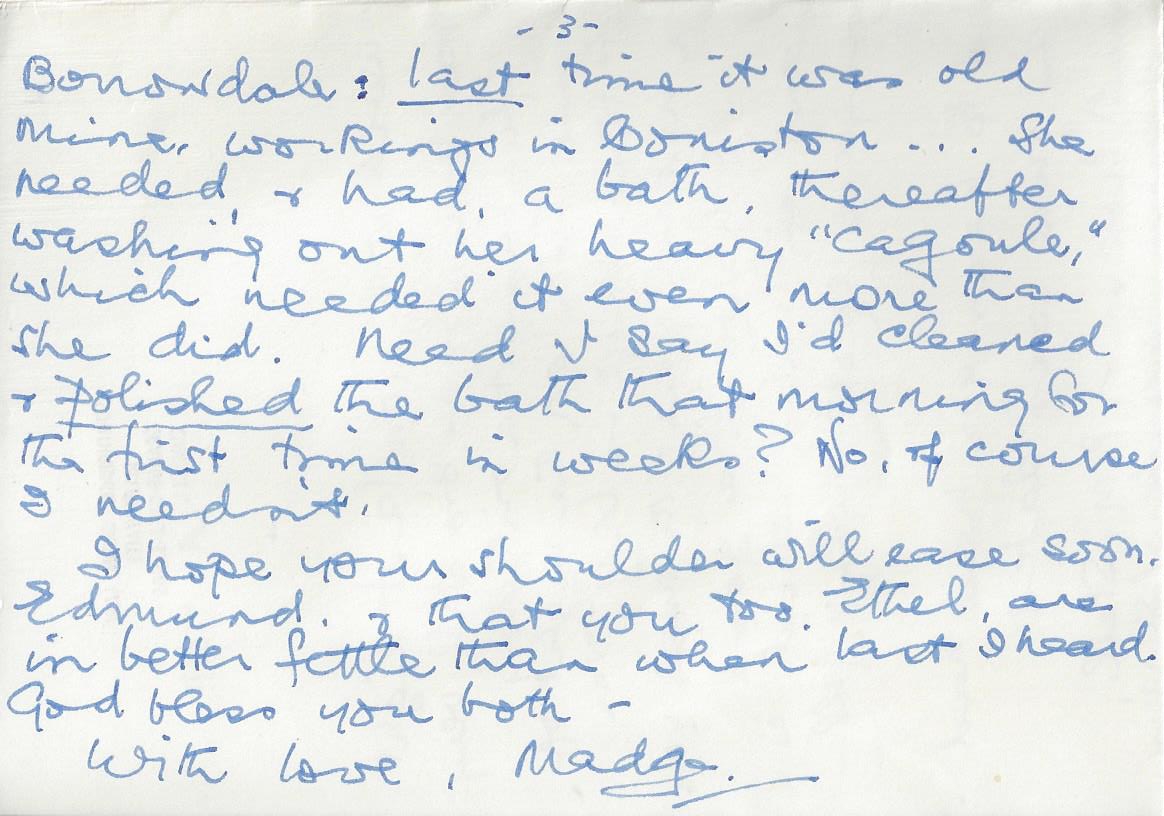 - 3 -
Borrowdale: last time it was old
mine, workings in Coniston... She
needed, & had, a bath, thereafter
washing out her heavy "cagoule,"
which needed it even more than
she did. Need I say I'd cleaned
& polished the bath that morning for
the first time in weeks? No, of course
I needn't.
I hope your shoulder will ease soon,
Edmund, & that you too, Ethel, are
in better fettle than when last I heard.
God bless you both -
With love, Madge.